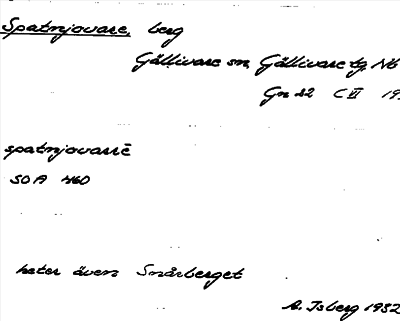 Spatnjovare, berg
Gällivare sn, Gällivare tg, Nb
Gn 12 C VI 19
spatnjovarrē
SOA 460
heter även Snårberget
A. Isberg 1932